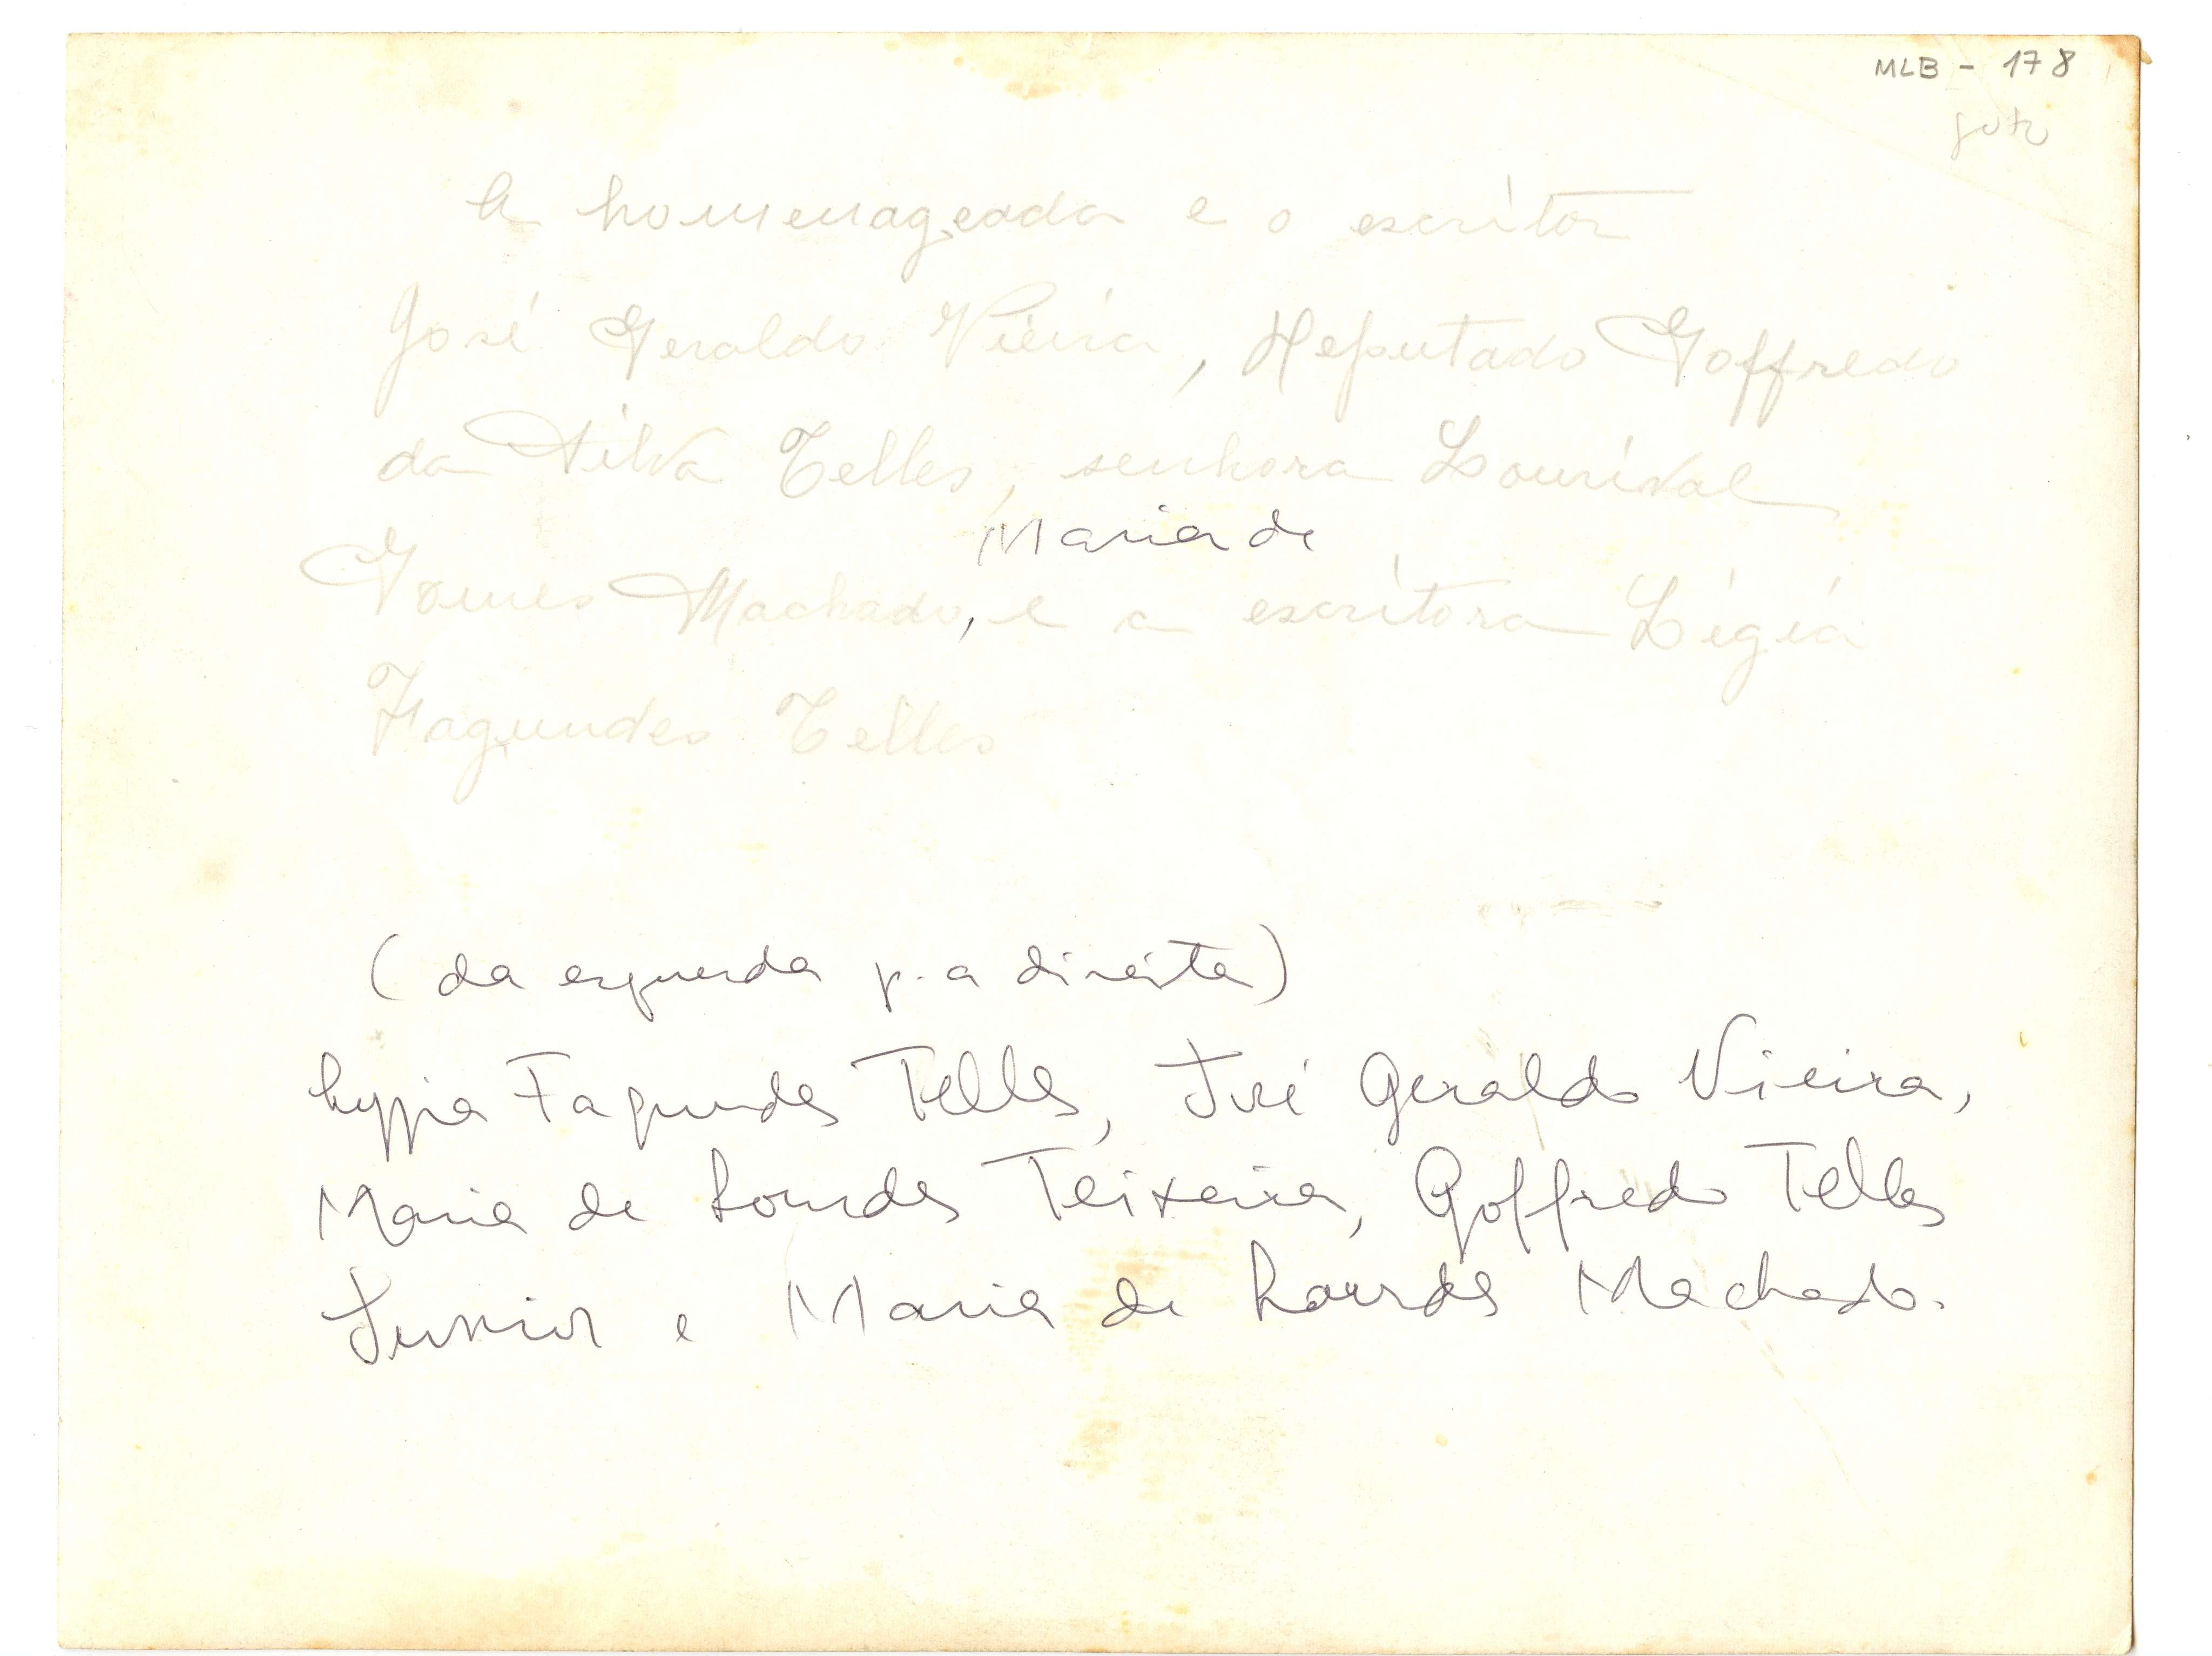 MLB - 178
A homenageada e o escritor
José Geraldo Vieira, Deputado Goffredo
da Silva Telles, senhora Lourival
Maria de
Gomes Machado, e a escritora Ligia
Fagundes Telles
(da esquerda p. a direita)
Lygia Fagundes Telles, José Geraldo Vieira,
Maria de Lourdes Teixeira, Goffredo Telles
Junior e Maria de Lourdes Machado.